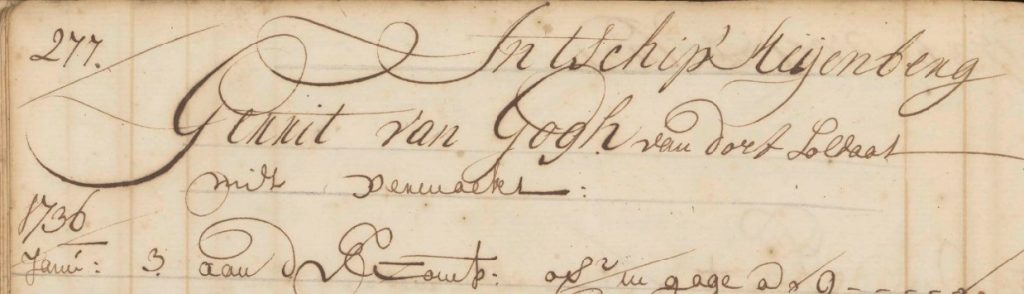 277. In t Schip Reijenberg
Gerrit van Gogh van dort Soldaat
niet vermaekt:
1736
Janu: 3 aan d E Comp: opr in gage a ƒ 9